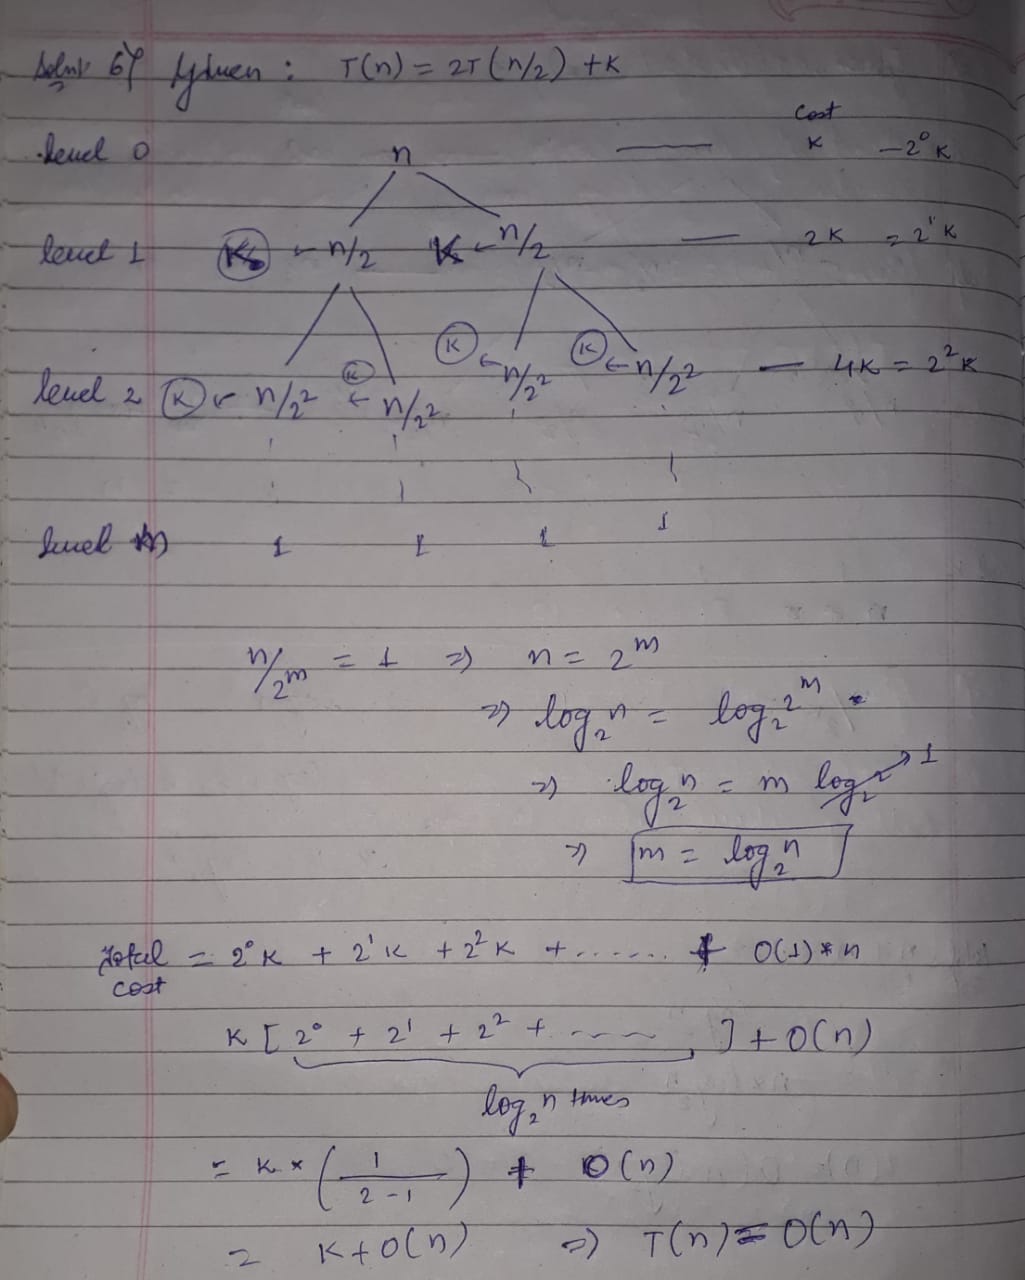 Soln 6) Given : T(n) = 2T(n/2) + K
cost
level 0 n — K — 2⁰K
level 1 K ← n/2 K ← n/2 — 2K = 2¹K
level 2 K ← n/2² K ← n/2² K ← n/2² K ← n/2² — 4K = 2²K
level m 1 1 1 1
n/2ᵐ = 1 ⇒ n = 2ᵐ
⇒ log₂n = log₂2ᵐ
⇒ log₂n = m log₂2 → 1
⇒ m = log₂n
Total cost = 2⁰K + 2¹K + 2²K + ...... + O(1)*n
K [ 2⁰ + 2¹ + 2² + ---- ] + O(n)
log₂n times
= K * ( 1 / 2-1 ) + O(n)
= K + O(n) ⇒ T(n) = O(n)